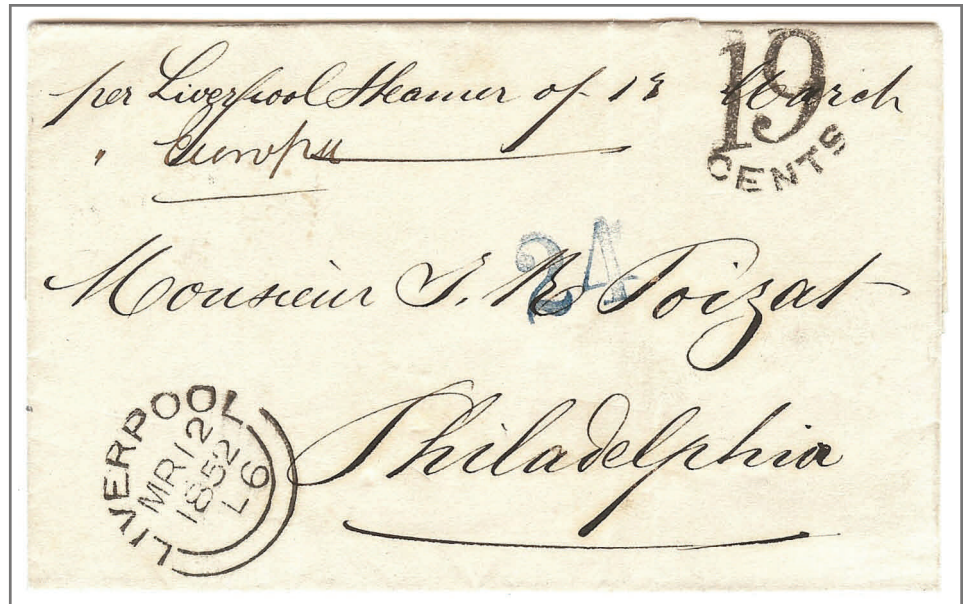 per Liverpool Steamer of 13 March
" Europa
19
CENTS
24
Monsieur J. M. Poizat
Philadelphia
LIVERPOOL
MR 12
1852
L6